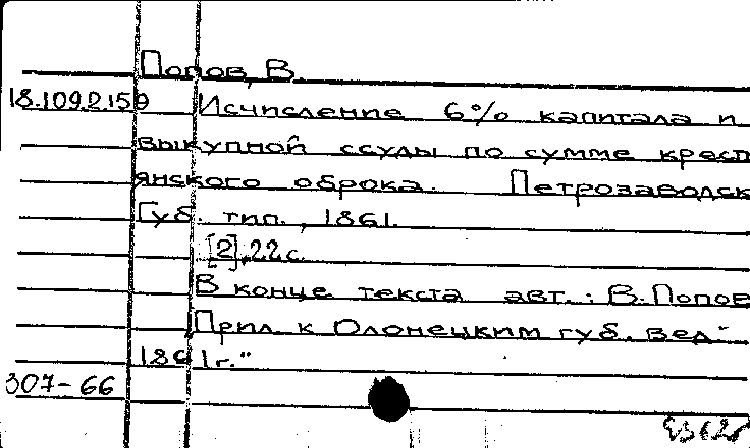 Попов, В.
18.109.2.159 Исчисление 6% капитала и
выкупной ссуды по сумме крест
янского оброка. Петрозаводск
Губ. тип., 1861.
[2], 22 с.
В конце текста авт.: В. Попов
Прил. к Олонецким губ. вед-
1861 г."
307-66